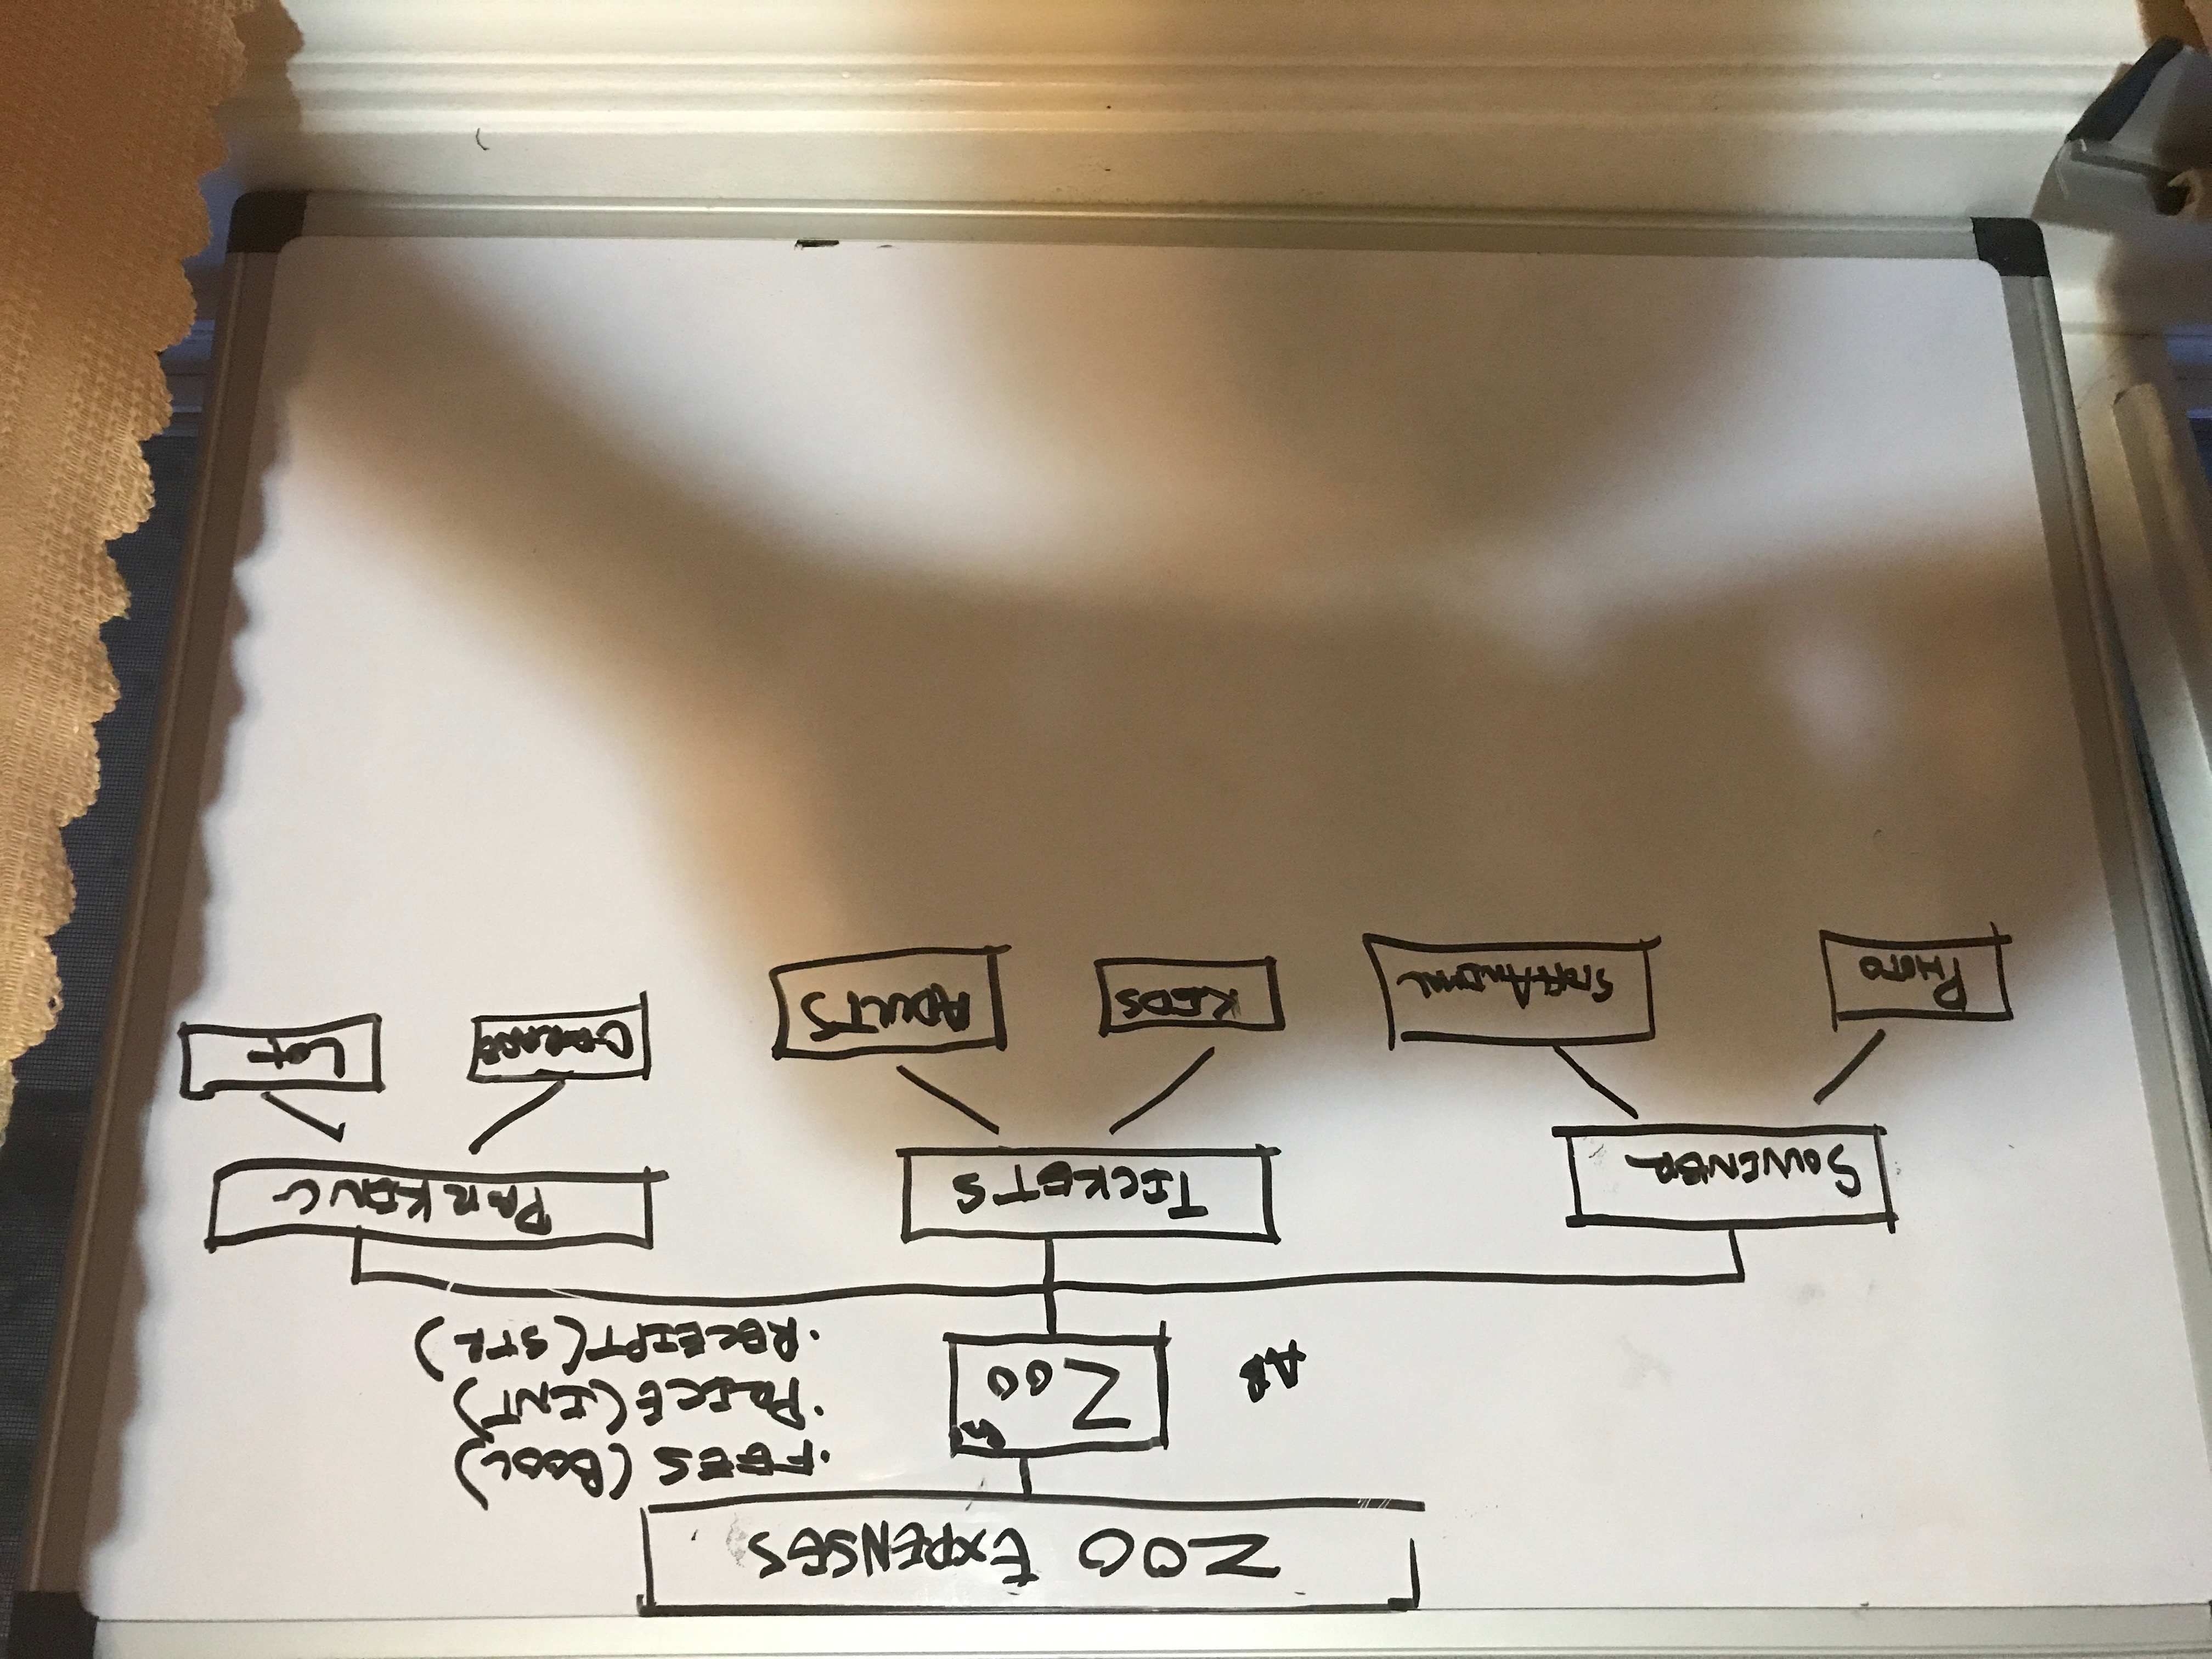 ZOO EXPENSES
ZOO
AB
· FEES (BOOL)
· PRICE (INT)
· RECEIPT (STR)
SOUVENER
TICKETS
PARKING
PHOTO
STUFFANIMAL
KIDS
ADULTS
GARAGE
LOT